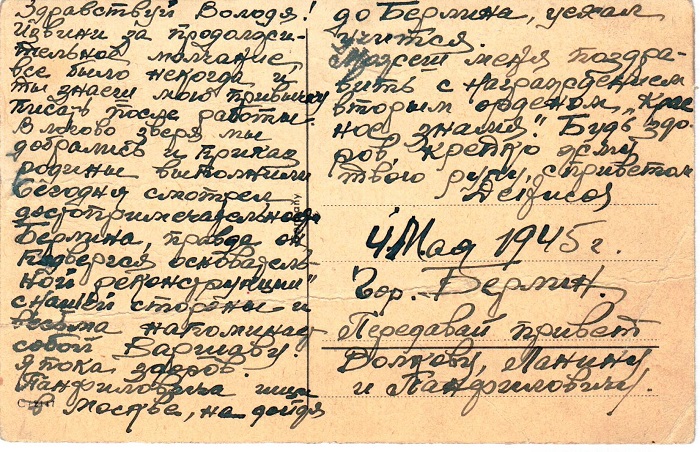 Здравствуй Володя!
Извини за продолжи-
тельное молчание,
все было некогда и
ты знаеш мою привычку
писать после работы.
В логово зверя мы
добрались и приказ
родины выполнили
сегодня смотрел
достопримечательности
Берлина, правда он
подвергся основатель-
ной реконструкции"
с нашей стороны и
весьма напоминает
собой Варшаву!
я пока здоров.
Панфиловича ищи
в Москве, не дойдя
до Берлина, уехал
учится.
Можеш меня поздра-
вить с награждением
вторым орденом „Крас
ное знамя". Будь здо-
ров, крепко жму
твою руку, с приветом
Денисов
4 Мая 1945 г.
Гор. Берлин.
Передавай привет
Волкову, Ланину
и Панфиловичу.